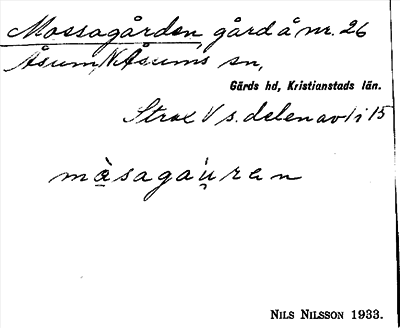 Mossagården, gård å nr. 26
Åsum, N. Åsums sn,
Gärds hd, Kristianstads län.
Strax V s. delen av 1 i 15
mɑ̀sagaṷ́ran
NILS NILSSON 1933.